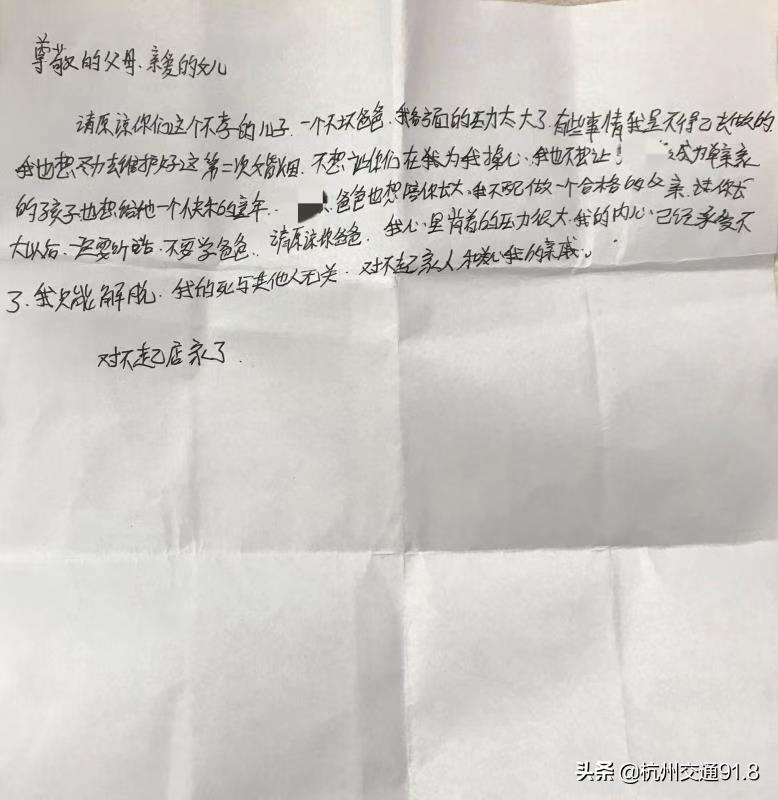 尊敬的父母、亲爱的女儿
请原谅你们这个不孝的儿子、一个不坏爸爸、我各方面的压力太大了、有些事情我是不得已去做的
我也想尽力去维护好这第二次婚姻、不想让你们在我为我操心、我也不想让 成为单亲家
的孩子也想给他一个快乐的童年、 爸爸也想陪你长大、我不配做一个合格的父亲、请你长
大以后、一定要听话、不要学爸爸、请原谅你爸爸、我心里背着的压力很大、我的内心已经承受不
了、我只能解脱、我的死与其他人无关、对不起家人和关心我的亲戚、
对不起店家了、
头条 @杭州交通91.8